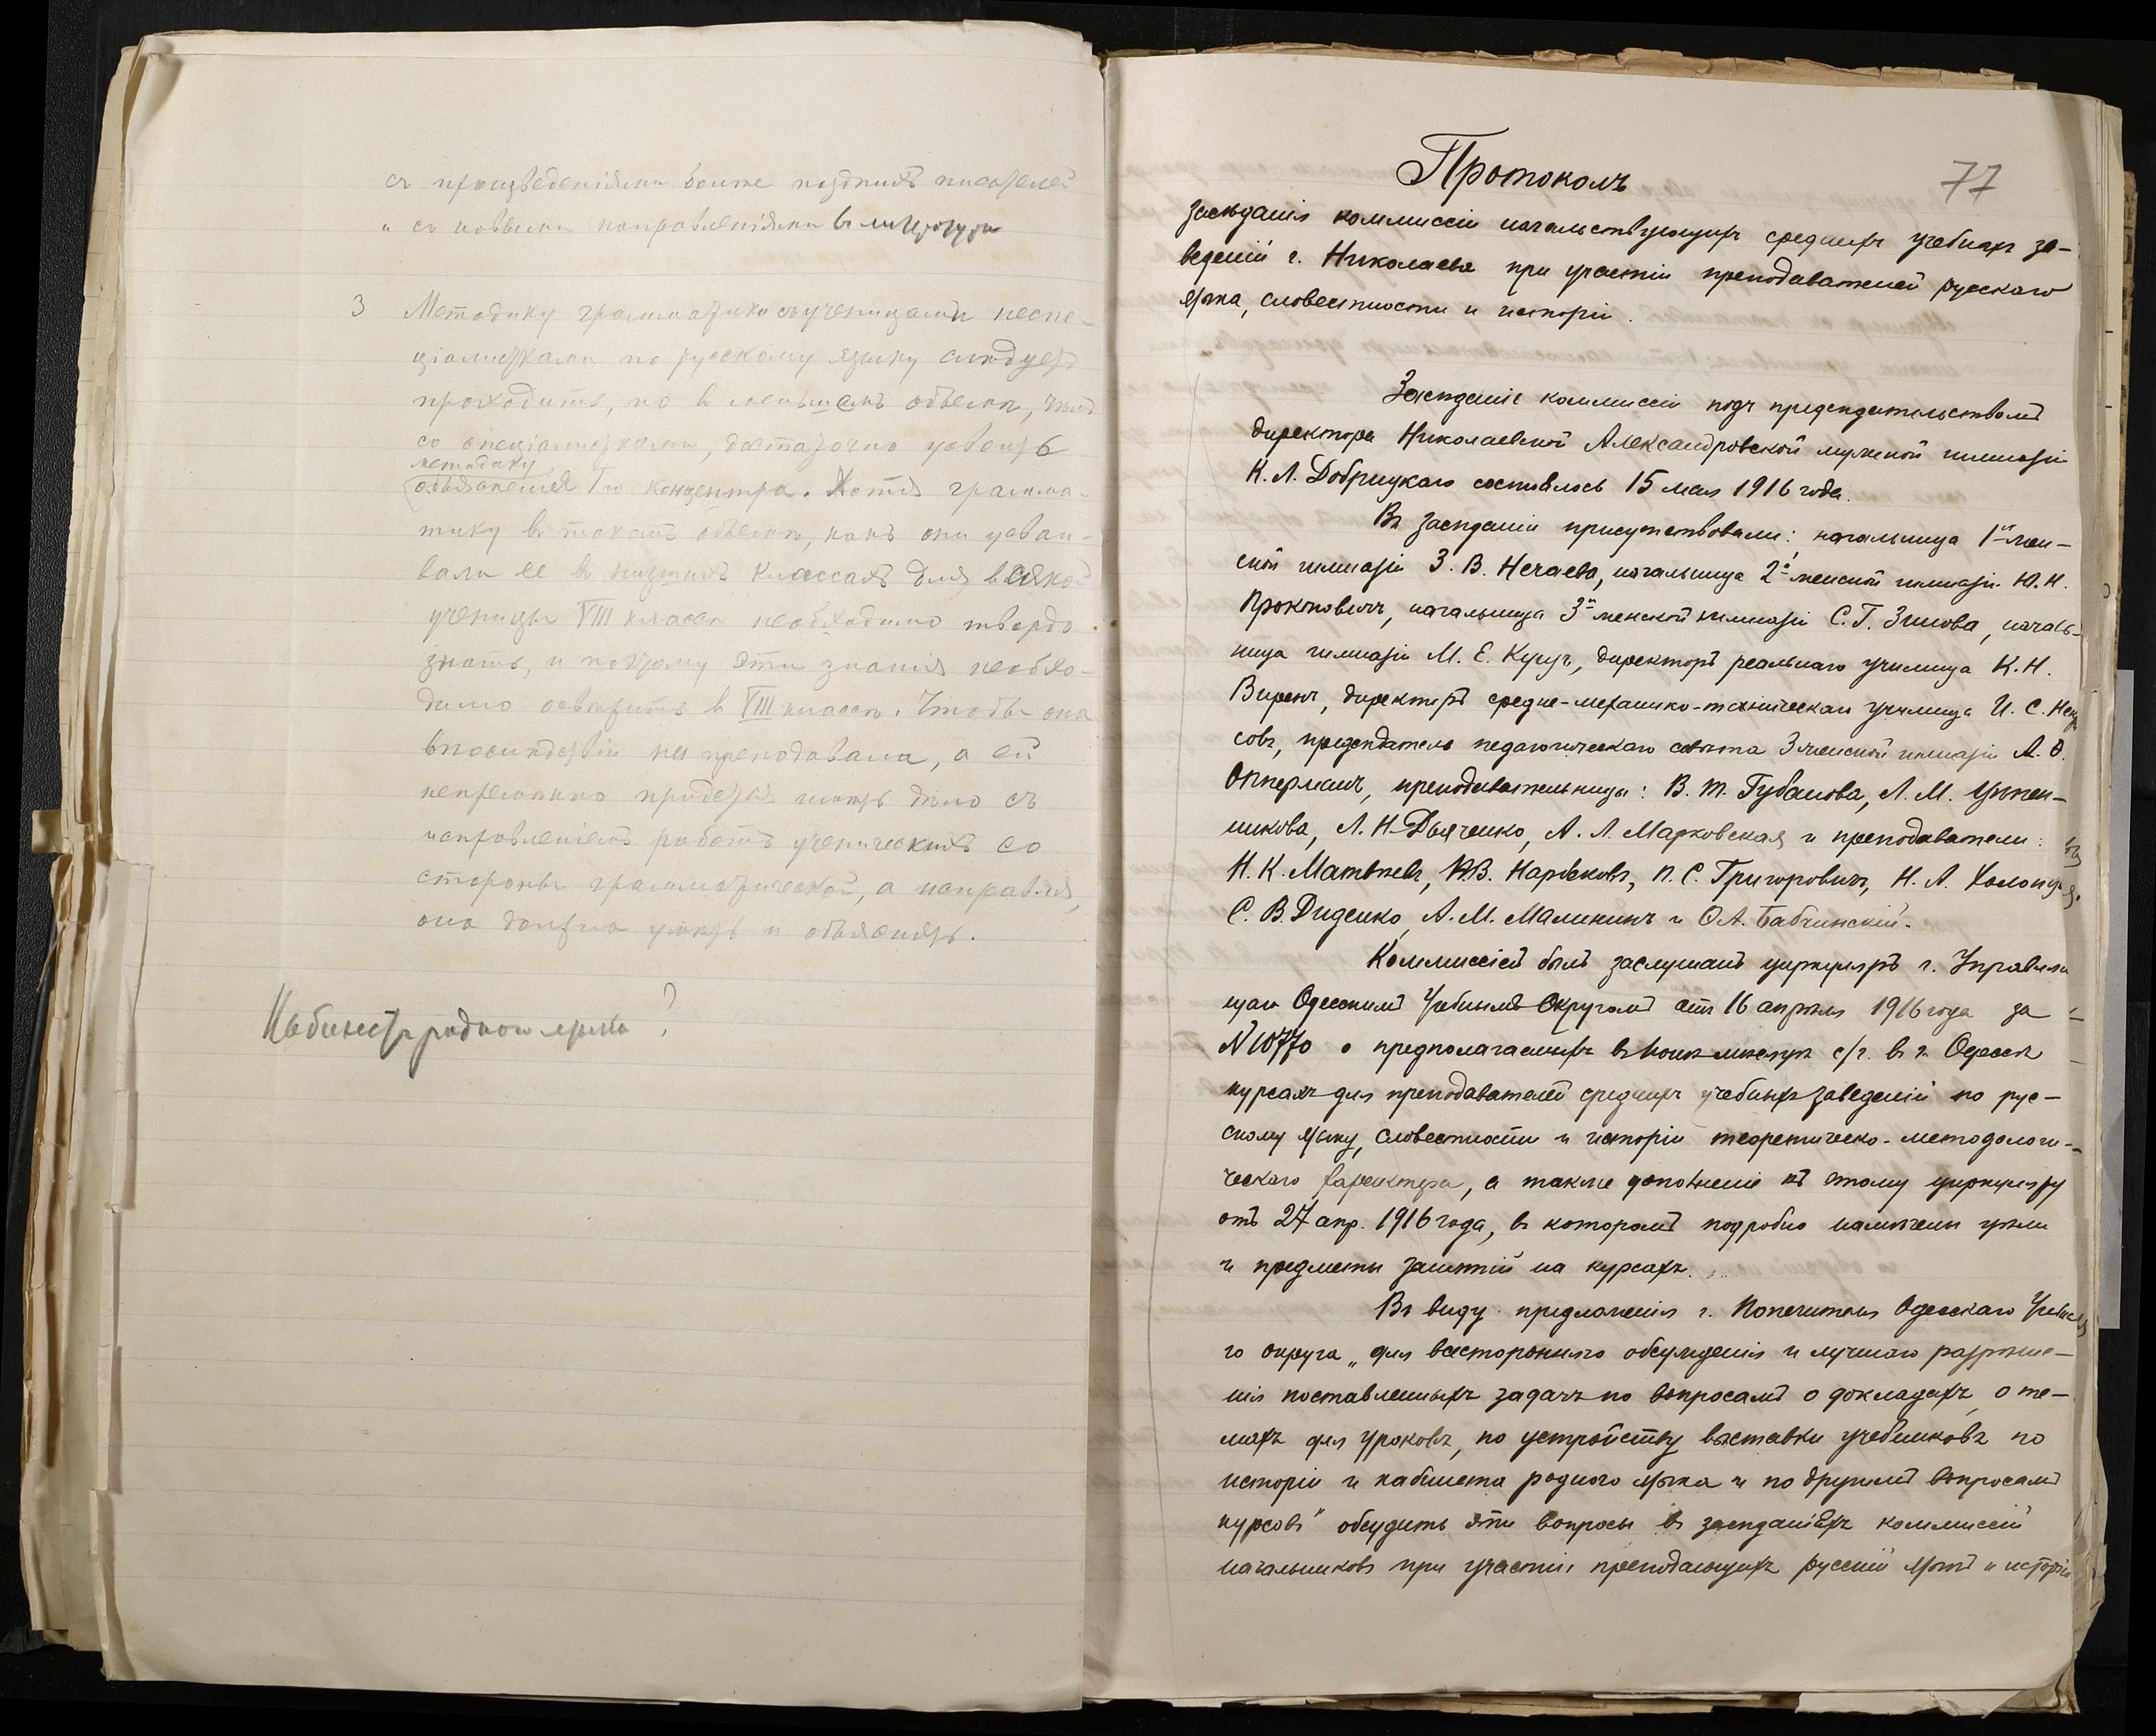 съ произведеніями болѣе позднихъ писателей
и съ новыми направленіями въ литературѣ
3 Методику грамматики съ ученицами неспе-
ціалистками по русскому языку слѣдуетъ
проходить, но въ меньшемъ объемѣ, чѣмъ
со спеціалистками, достаточно усвоить
методику
объясненія 1го концентра. Хотя грамма-
тику въ такомъ объемѣ, какъ они усваи-
вали ее въ низшихъ классахъ для всякой
ученицы VIII класса необходимо твердо
знать, и поэтому эти знанія необхо-
димо освѣжить въ VIII классѣ. Чтобы она
впослѣдствіи не преподавала, а ей
непремѣнно придется имѣть дѣло съ
исправленіемъ работъ ученическихъ со
стороны грамматической, а исправляя,
она должна умѣть и объяснять.
Кабинетъ родного языка ?
77
Протоколъ
засѣданія коммиссіи начальствующихъ среднихъ учебныхъ за-
веденій г. Николаева при участіи преподавателей русскаго
языка, словесности и исторіи.
Засѣданіе коммиссіи подъ предсѣдательствомъ
директора Николаевской Александровской мужской гимназіи
К. Л. Добрицкаго состоялось 15 мая 1916 года.
Въ засѣданіи присутствовали: начальница 1й жен-
ской гимназіи З. В. Нечаева, начальница 2й женской гимназіи Ю. Н.
Прокоповичъ, начальница 3й женской гимназіи С. Г. Зимова, началь-
ница гимназіи М. Е. директоръ реальнаго училища К. Н.
Виренъ, директоръ средне-механико-техническаго училища И. С.
совъ, предсѣдатель педагогическаго совѣта 3 женской гимназіи А. Ѳ.
Опперманъ, преподавательницы: В. Т. Губанова, Л. М.
никова, Л. Н. Дьяченко, А. Л. Марковская и преподаватели:
Н. К. Матвѣевъ, Нарбековъ, П. С. Григоровичъ, Н. А.
С. В. Диденко, А. М. Малининъ и О. А. Бабчинскій.
Коммиссіей былъ заслушанъ циркуляръ г. Управляю
щаго Одесскимъ Учебнымъ Округомъ отъ 16 апрѣля 1916 года за
№ 10770 о предполагаемыхъ въ іюнѣ мѣсяцѣ с/г. въ г. Одессѣ
курсахъ для преподавателей среднихъ учебныхъ заведеній по рус-
скому языку, словесности и исторіи теоретическо-методологи-
ческаго характера, а также дополненіе къ этому циркуляру
отъ 27 апр. 1916 года, въ которомъ подробно намѣчены цѣли
и предметы занятій на курсахъ.
Въ виду предложенія г. Попечителя Одесскаго Учебна
го округа „для всесторонняго обсужденія и лучшаго разрѣше-
нія поставленныхъ задачъ по вопросамъ о докладахъ, о те-
махъ для уроковъ, по устройству выставки учебниковъ по
исторіи и кабинета родного языка и по другимъ вопросамъ
курсовъ" обсудить эти вопросы въ засѣданіяхъ коммиссій
начальниковъ при участіи преподающихъ русскій языкъ и исторію